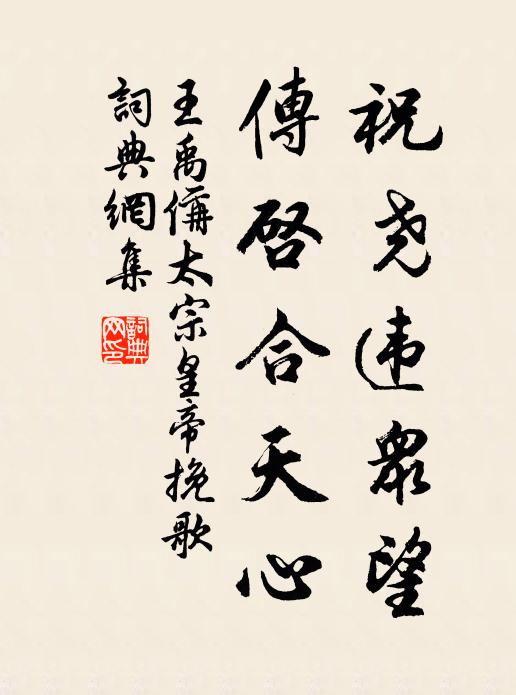 祝尧违眾望
傳启合天心
王禹偁太宗皇帝挽歌
詞典網集
詞典
网印